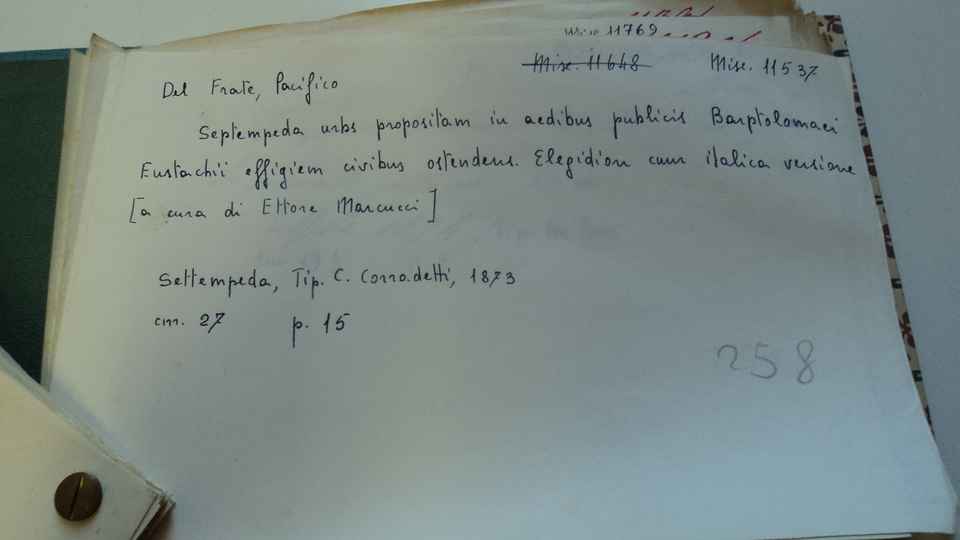 Misc 11769
Misc. 11648 Misc. 11537
Del Frate, Pacifico
Septempeda urbs propositam in aedibus publicis Barptolomaei
Eustachii effigiem civibus ostendens. Elegidion cum italica versione
[a cura di Ettore Marcucci]
Settempeda, Tip. C. Corradetti, 1873
cm. 27 p. 15
258